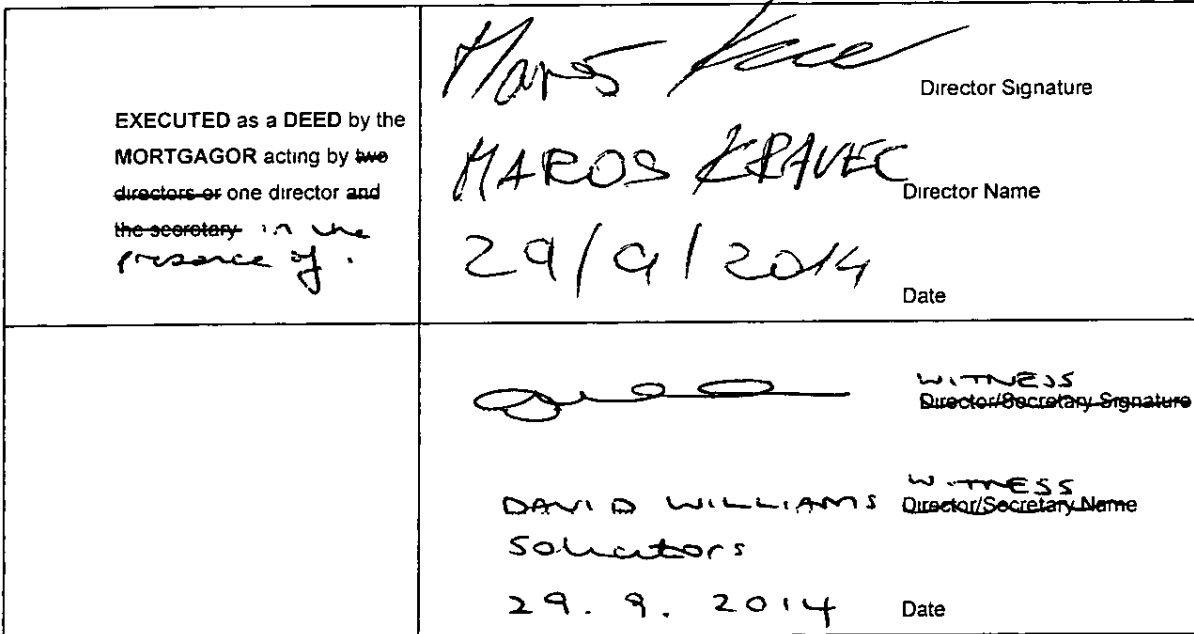 EXECUTED as a DEED by the
MORTGAGOR acting by two
directors or one director and
the secretary in the
presence of.
Maros Director Signature
MAROS KRAVEC Director Name
29/9/2014 Date
WITNESS
Director/Secretary Signature
WITNESS
DAVID WILLIAMS Director/Secretary Name
Solicitors
29.9.2014 Date